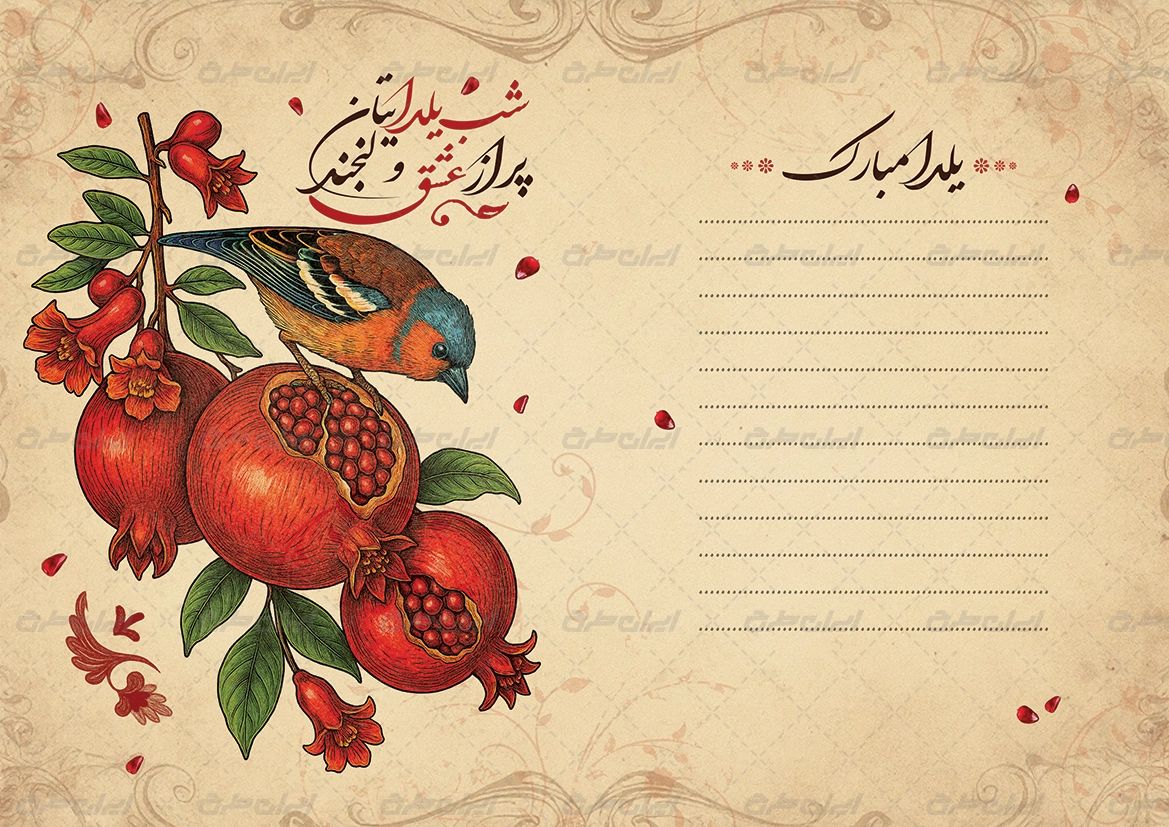 شب یلدایتان
پر از عشق و لبخند
یلدا مبارک
ایران طرح